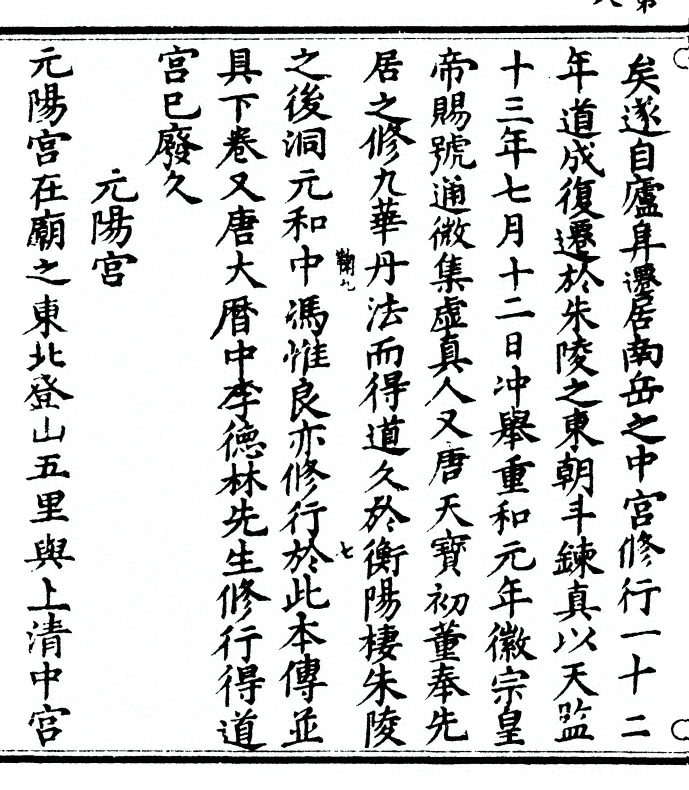 矣遂自廬阜遷居南岳之中宮修行一十二
年道成復遷於朱陵之東朝斗鍊真以天監
十三年七月十二日沖舉重和元年徽宗皇
帝賜號通微集虛真人又唐天寶初董奉先
居之修九華丹法而得道久於衡陽棲朱陵
之後洞元和中馮惟良亦修行於此本傳並
具下卷又唐大曆中李德林先生修行得道
宮巳廢久
元陽宮
元陽宮在廟之東北登山五里與上清中宮